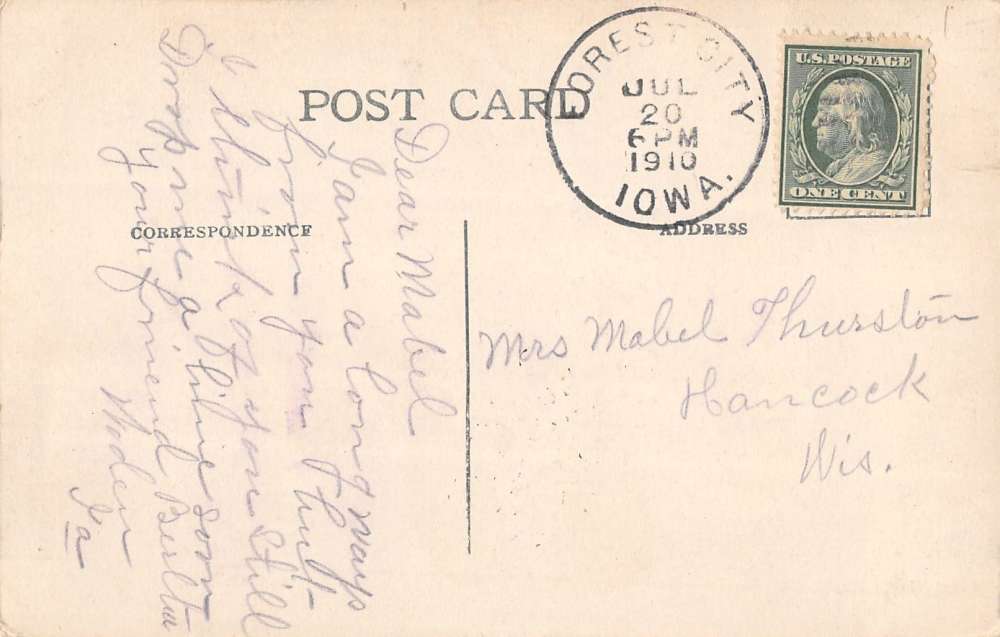 POST CARD
FOREST CITY
JUL
20
6 PM
1910
IOWA.
U.S. POSTAGE
ONE CENT
CORRESPONDENCE
ADDRESS
Dear Mabel
I am a long ways
from you but
I think of you still
Drop me a line soon
your friend
Woden
Ia
Mrs Mabel Thurston
Hancock
Wis.